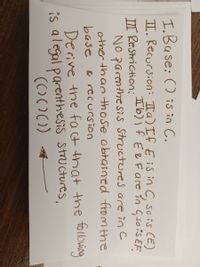 I. Base: () is in C.
II. Recursion: IIa) If E is in C, so is (E)
IIb) If E & F are in C, so is EF
III Restriction:
No parenthesis structures are in C
other than those obtained from the
base & recursion
Derive the fact that the following
is a legal parenthesis structures,
(()()())